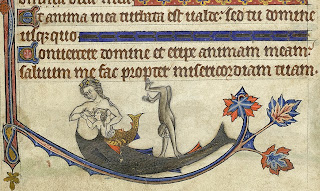 Et anima mea turbata est valde: sed tu domine
usquequo
Convertere domine et eripe animam meam:
salvum me fac propter misericordiam tuam.